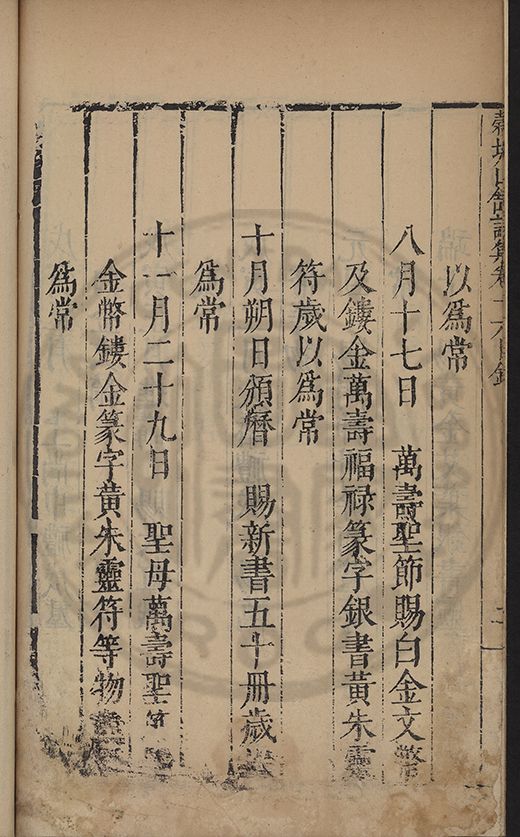 以為常
八月十七日 萬壽聖節賜白金文幣
及鏤金萬壽福祿篆字銀書黃朱靈
符歲以為常
十月朔日頒曆 賜新書五十冊歲
為常
十一月二十九日 聖母萬壽聖
金幣鏤金篆字黃朱靈符等物
為常